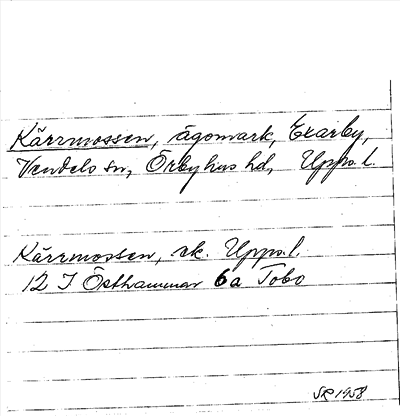 Kärrmossen, ägomark, Ekarby,
Vendels sn, Örbyhus hd, Upps. l.
Kärrmossen, ek. Upps. l.
12 I Östhammar 6a Tobo
SR 1958